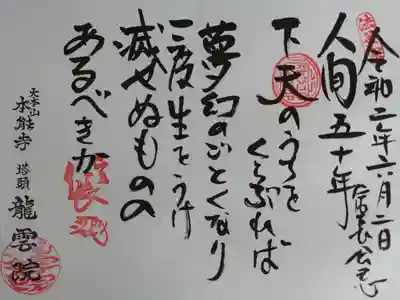 令和二年六月二日
信長公忌
人間五十年
下天のうちを
くらぶれば
夢幻のごとくなり
一度生をうけ
滅せぬものの
あるべきか
大本山
永能寺 塔頭
龍雲院